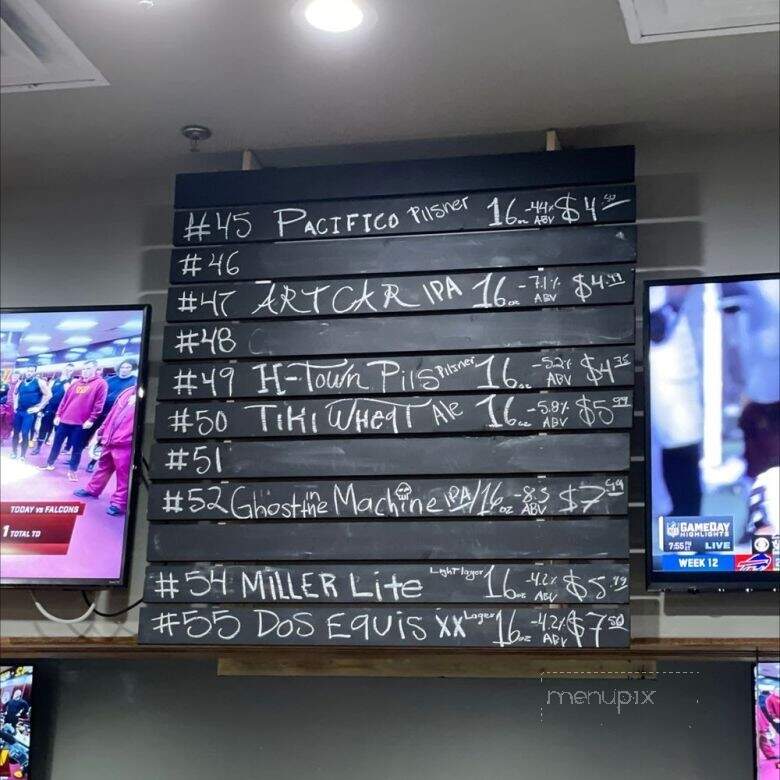 #45 PACIFICO Pilsner 16oz -4.4% ABV $4
#46
#47 ART CAR IPA 16oz -7.1% ABV $4.49
#48
#49 H-Town Pils Pilsner 16oz -5.2% ABV $4.75
#50 TIKI WHEAT Ale 16oz -5.8% ABV $5.99
#51
#52 Ghost in the Machine IPA 16oz -8.3 ABV $7.49
#54 MILLER Lite Light lager 16oz -4.2% ABV $5.99
#55 DOS EQUIS XX Lager 16oz -4.2% ABV $7.50
TODAY vs FALCONS
1 TOTAL TD
NFL GAMEDAY
HIGHLIGHTS
7:55 LIVE
WEEK 12
menupix